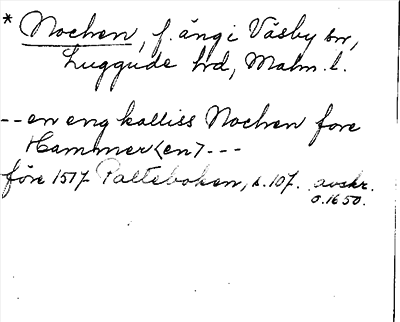 * Nochen, f. äng i Väsby sn,
Luggude hd, Malm. l.
-- en eng kalliss Nochen fore
Hammer<en> ---
före 1517 Palteboken, s. 107. avskr.
o. 1650.